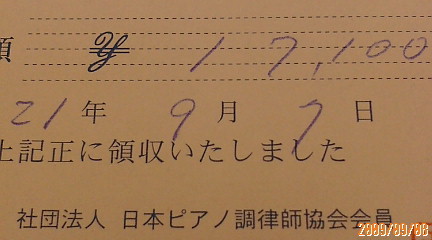 額 ¥ 17,100
21年 9月 7日
上記正に領収いたしました
社団法人 日本ピアノ調律師協会会員
2009/09/08